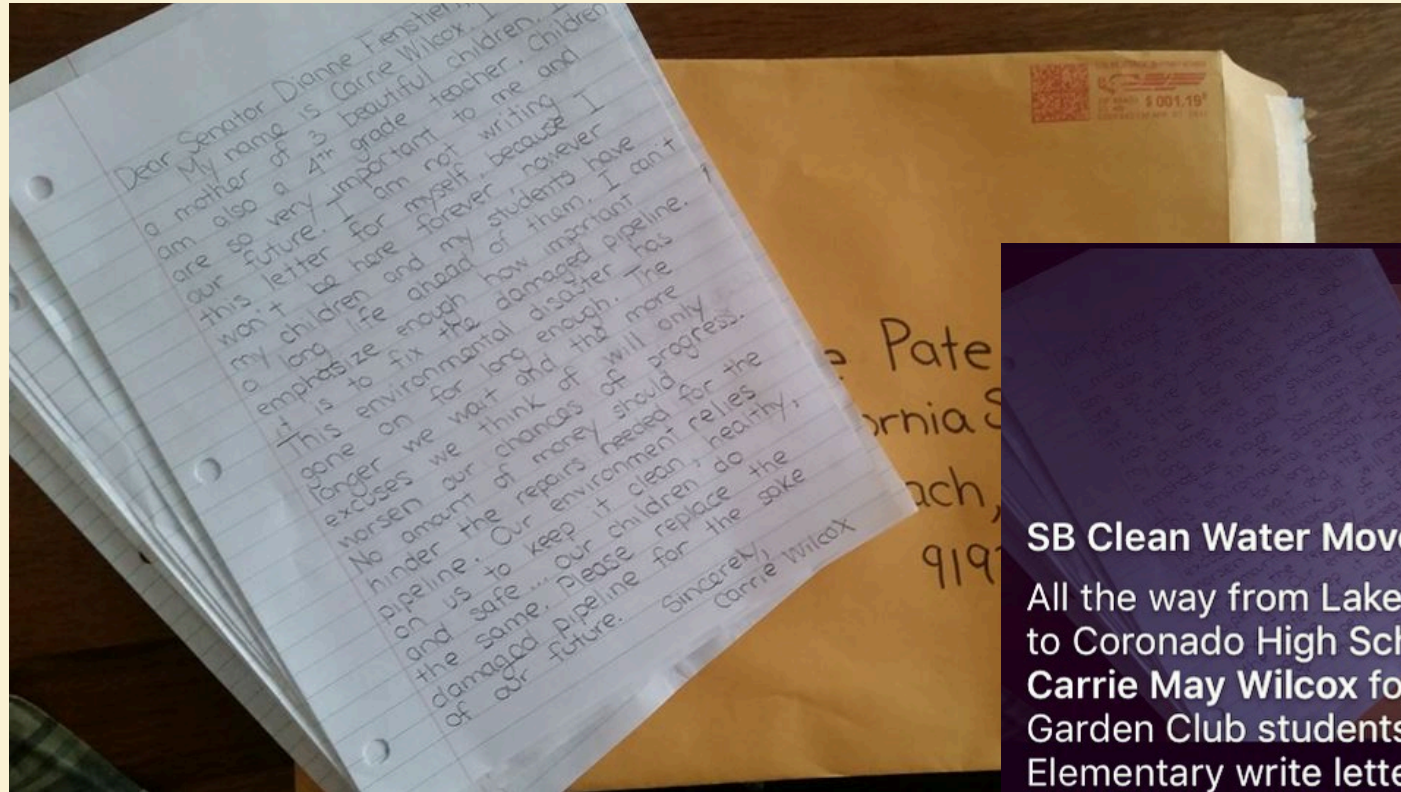 Dear Senator Dianne Fienstien,
My name is Carrie Wilcox. I
a mother of 3 beautiful children. I
am also a 4th grade teacher. Children
are so very important to me and
our future. I am not writing
this letter for myself, because I
won't be here forever, however
my children and my students have
a long life ahead of them. I can't
emphasize enough how important
it is to fix the damaged pipeline.
This environmental disaster has
gone on for long enough. The
longer we wait and the more
excuses we think of will only
worsen our chances of progress.
No amount of money should
hinder the repairs needed for the
pipeline. Our environment relies
on us to keep it clean, healthy,
and safe... our children do
the same. Please replace the
damaged pipeline for the sake
of our future.
Sincerely,
Carrie Wilcox
$ 001.19
e Pate
ornia S
ach,
919
SB Clean Water Move
All the way from Lake
to Coronado High Sch
Carrie May Wilcox fo
Garden Club students
Elementary write lette